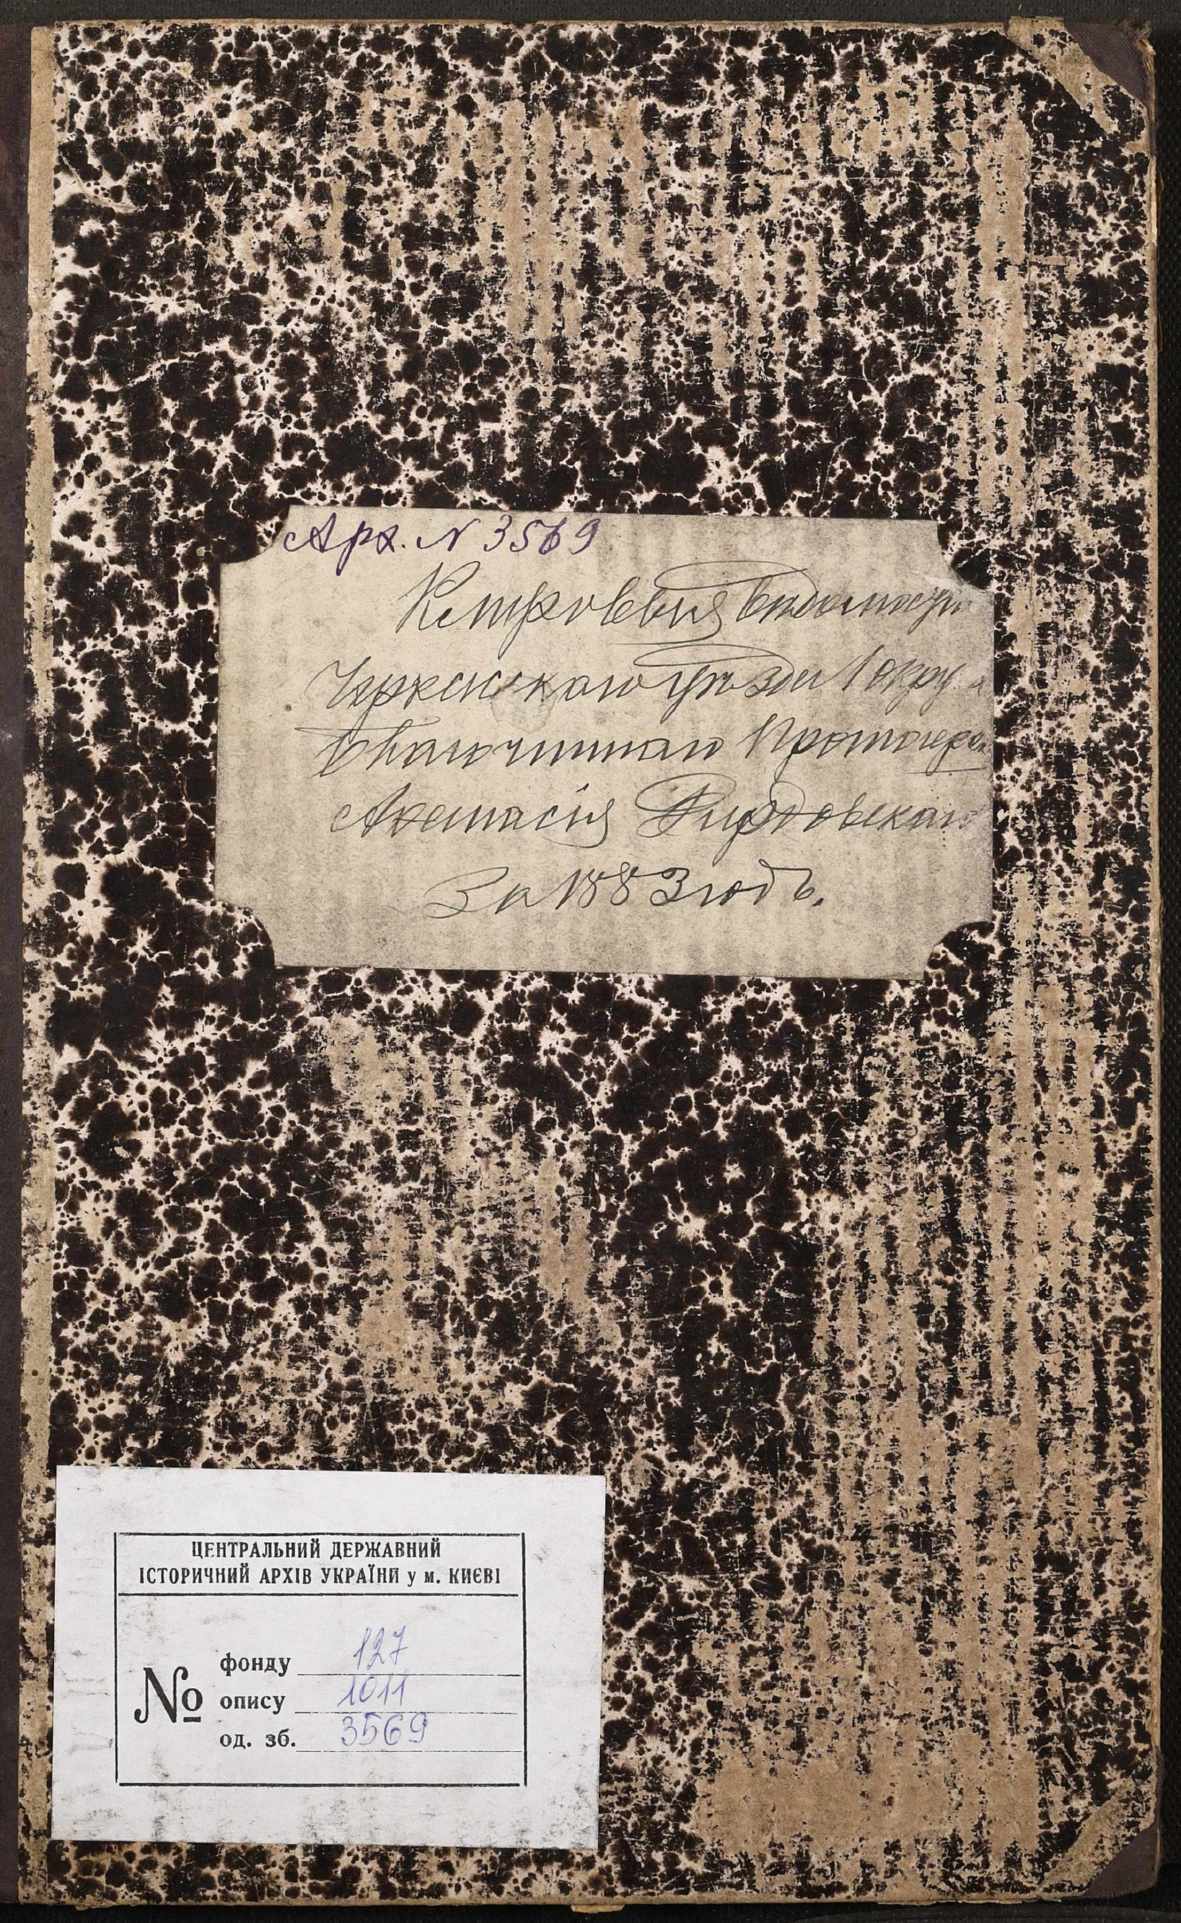 Арх. N 3569
Клировыя Ведомости
Черкасскаго уезда 1 окру
Благочиннаго Протоиерея
Афанасія
За 1883 годъ.
ЦЕНТРАЛЬНИЙ ДЕРЖАВНИЙ
ІСТОРИЧНИЙ АРХІВ УКРАЇНИ у м. КИЄВІ
№
фонду 127
опису 1011
од. зб. 3569